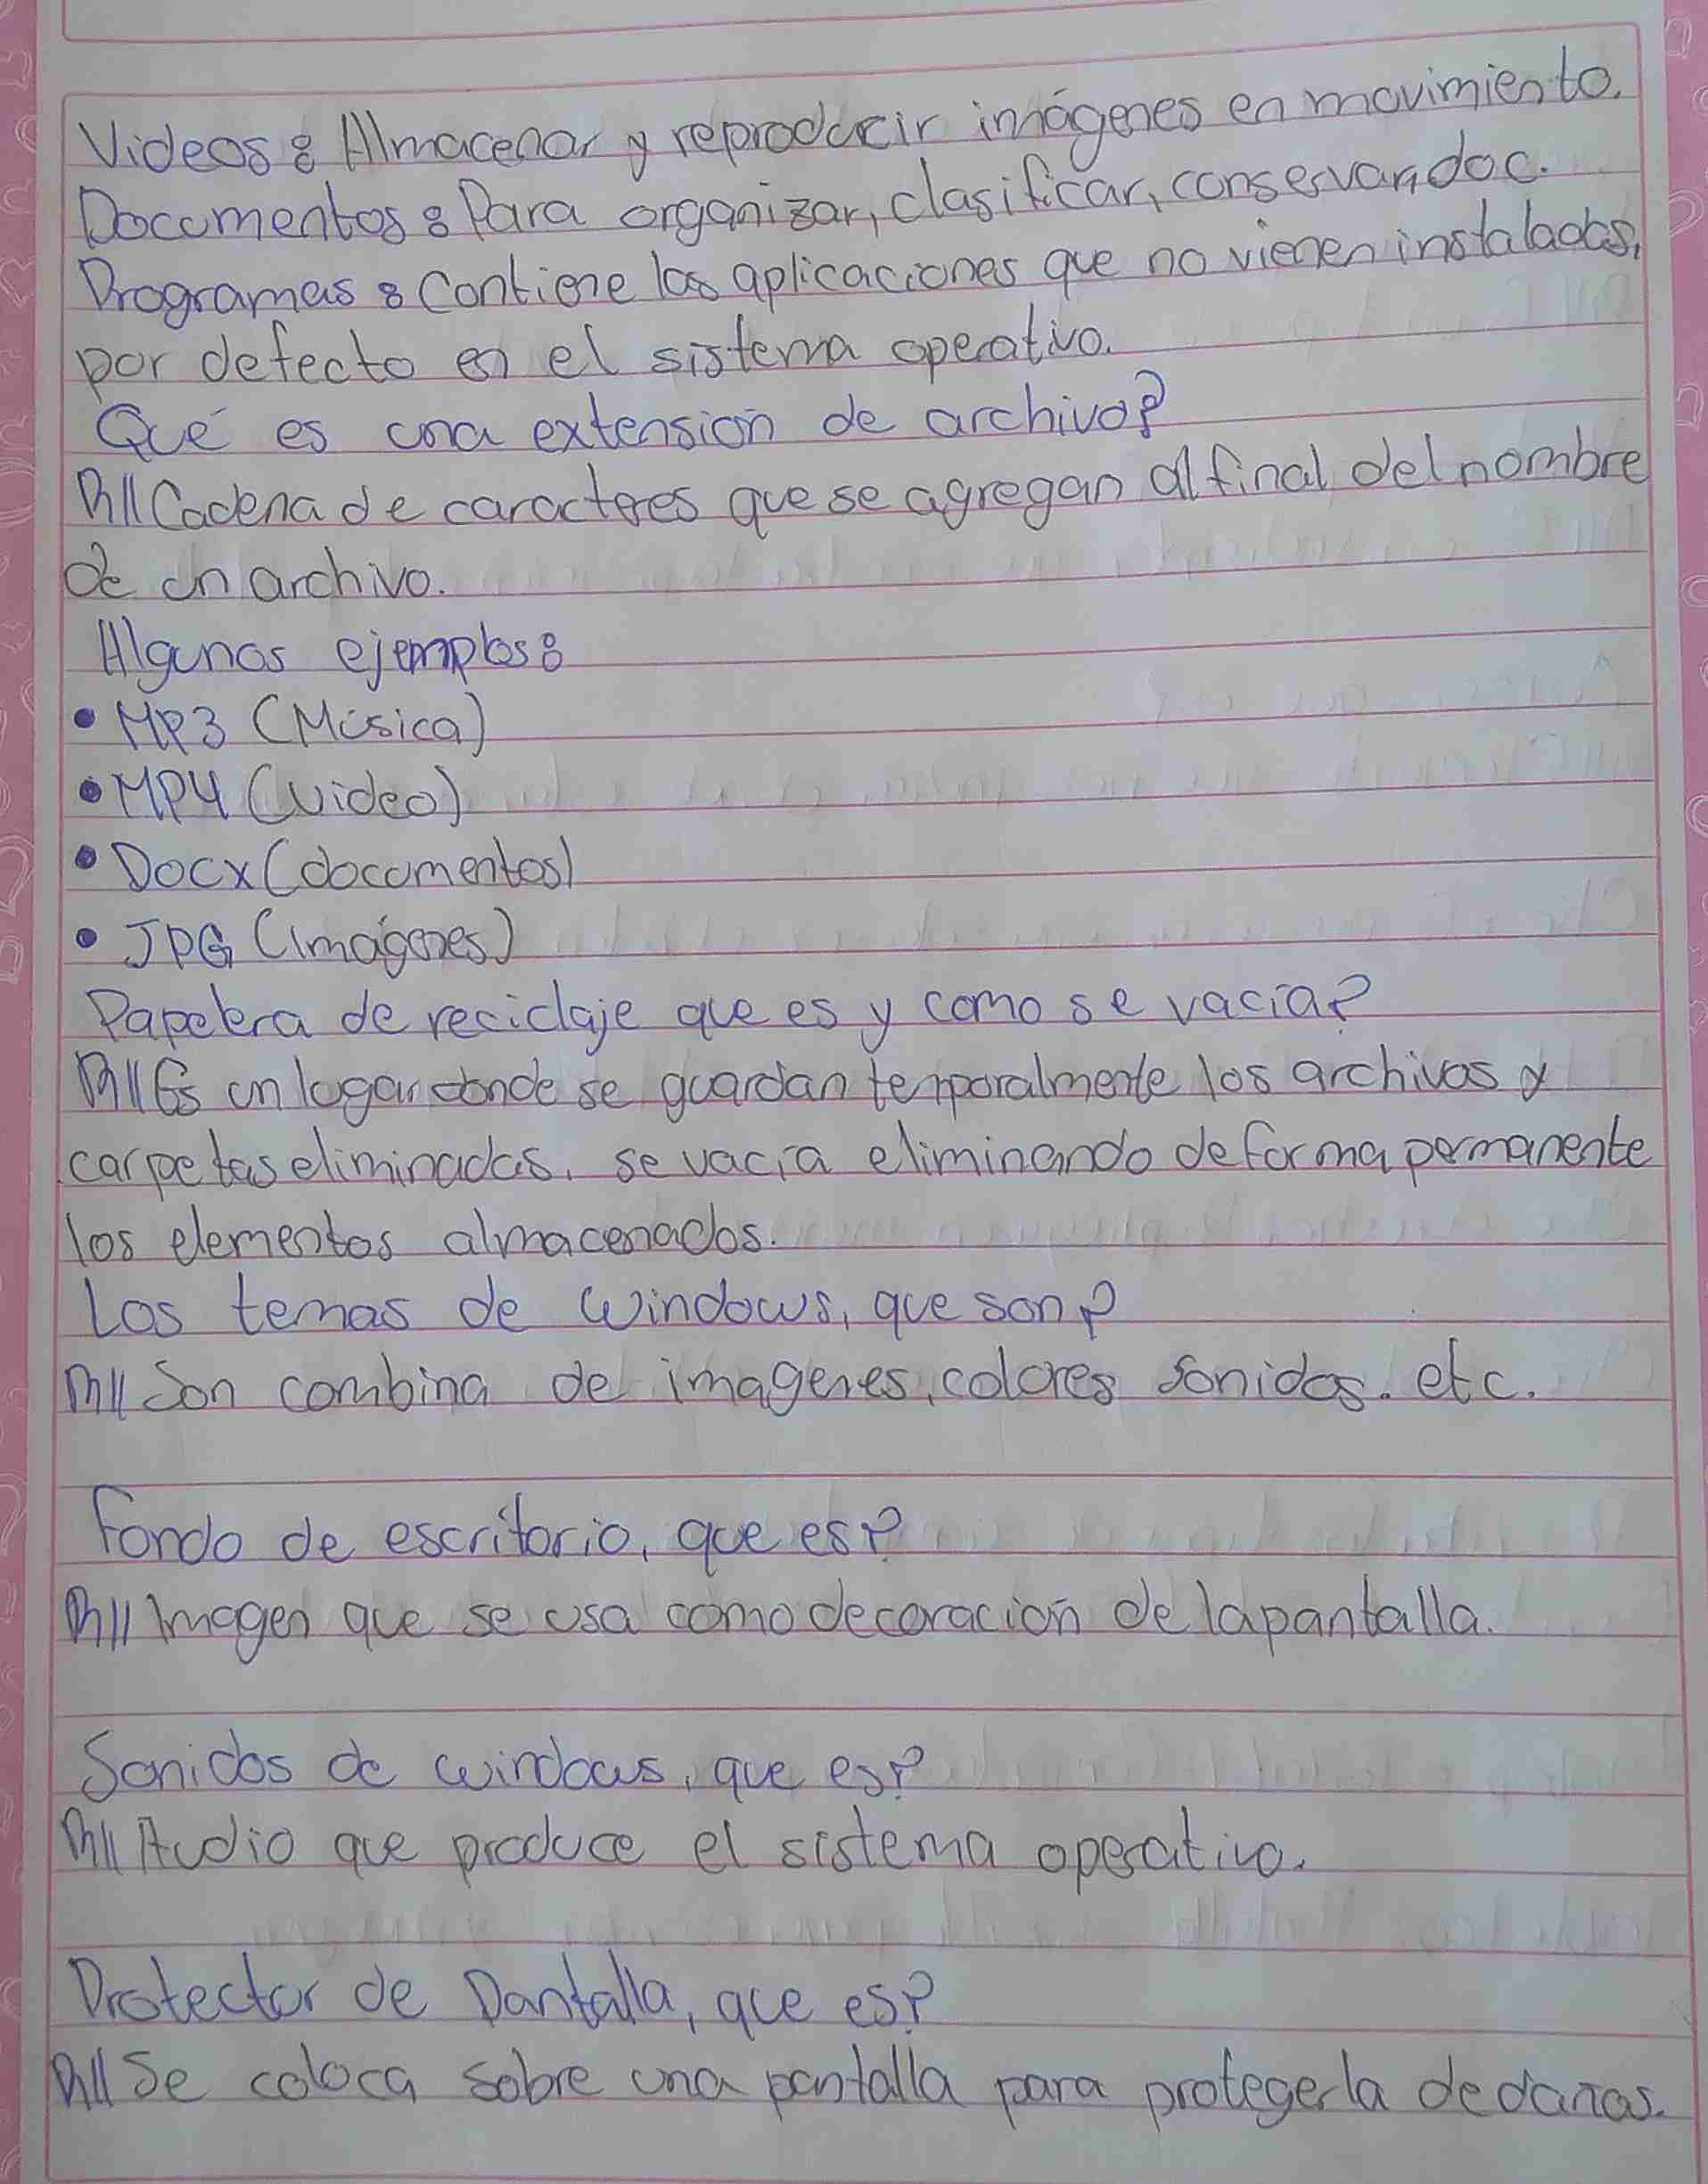 Videos: Almacenar y reproducir imágenes en movimiento.
Documentos: Para organizar, clasificar, conservar doc.
Programas: Contiene las aplicaciones que no vienen instalados,
por defecto en el sistema operativo.
Qué es una extensión de archivo?
R// Cadena de caracteres que se agregan al final del nombre
de un archivo.
Algunos ejemplos:
• MP3 (Música)
• MP4 (video)
• Docx (documentos)
• JPG (imágenes)
Papelera de reciclaje que es y como se vacía?
R// Es un lugar donde se guardan temporalmente los archivos y
carpetas eliminadas. se vacía eliminando de forma permanente
los elementos almacenados.
Los temas de windows, que son?
R// Son combina de imagenes, colores sonidos. etc.
Fondo de escritorio, que es?
R// Imagen que se usa como decoración de la pantalla.
Sonidos de windows, que es?
R// Audio que produce el sistema operativo.
Protector de Pantalla, que es?
R// Se coloca sobre una pantalla para protegerla de daños.